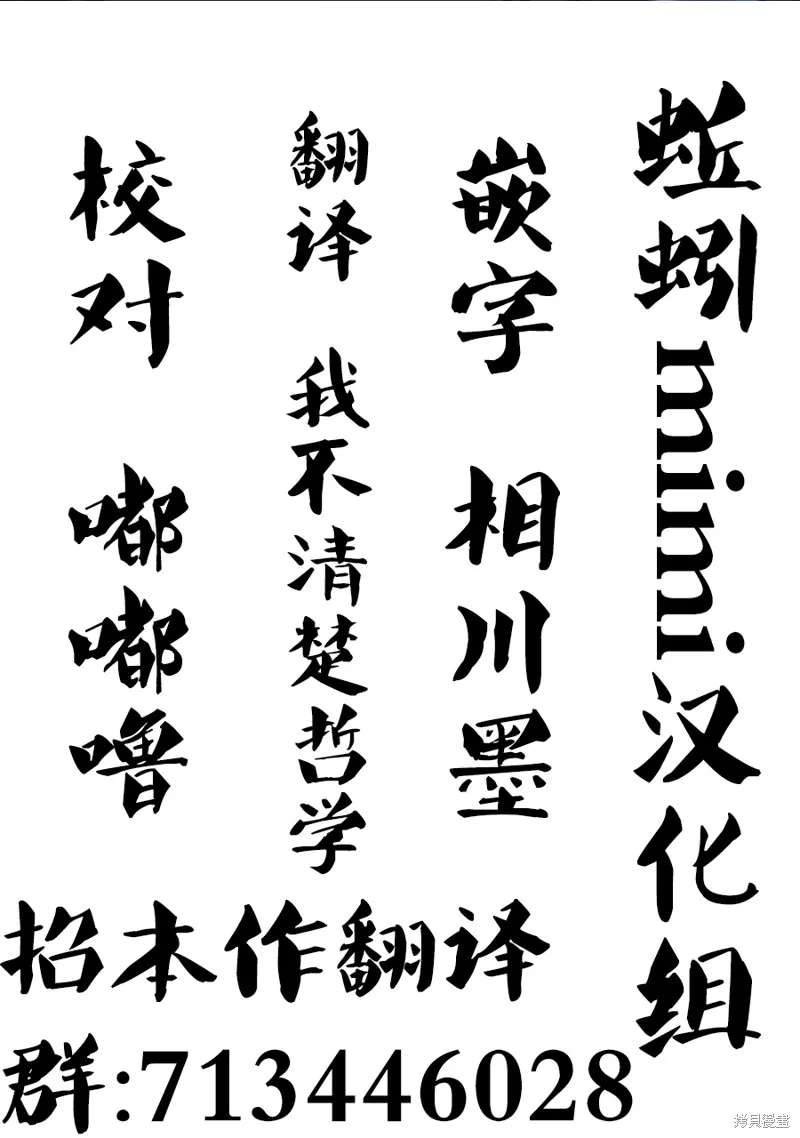 蚯蚓mimi汉化组
嵌字 相川墨
翻译 我不清楚哲学
校对 嘟嘟噜
招本作翻译
群:713446028
拷貝漫畫